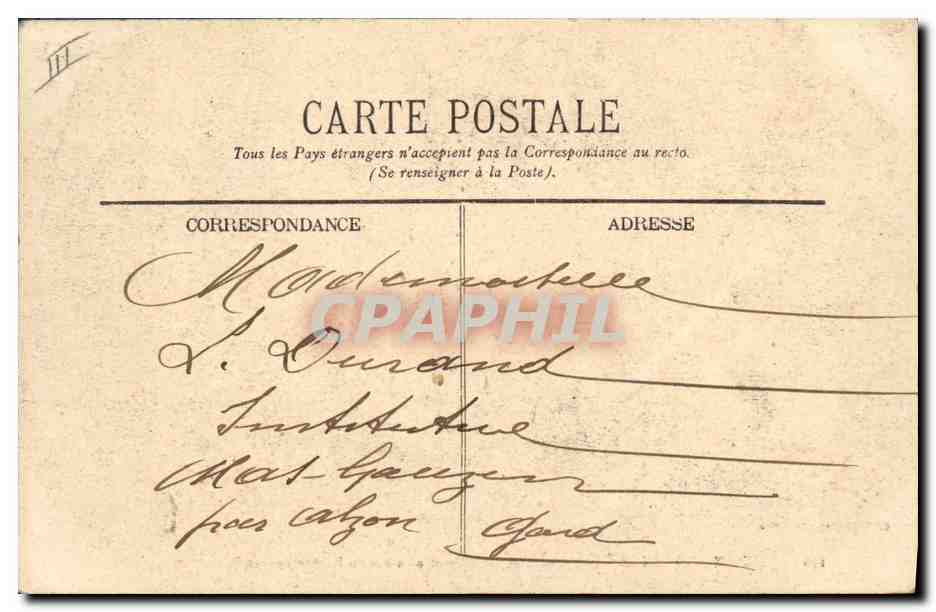 III
CARTE POSTALE
Tous les Pays étrangers n'acceptent pas la Correspondance au recto.
(Se renseigner à la Poste).
CORRESPONDANCE
ADRESSE
Mademoiselle
CPAPHIL
L. Durand
Institutrice
Mas-Gauzen
par Alzon Gard